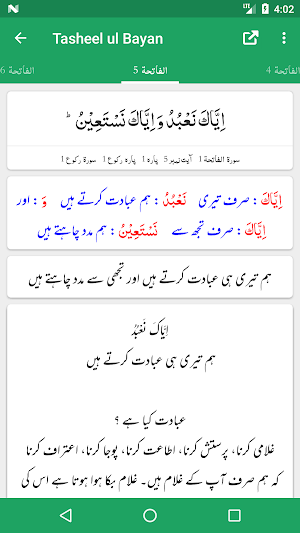 4:02
Tasheel ul Bayan
الفاتحة 4
الفاتحة 5
الفاتحة 6
اِيَّاكَ نَعْبُدُ وَاِيَّاكَ نَسْتَعِيْنُ ؕ
سورۃ الفاتحۃ 1 آیت نمبر 5 پارہ 1 پارہ رکوع 1 سورۃ رکوع 1
اِيَّاكَ : صرف تیری نَعْبُدُ : ہم عبادت کرتے ہیں وَ : اور
اِيَّاكَ : صرف تجھ سے نَسْتَعِيْنُ : ہم مدد چاہتے ہیں
ہم تیری ہی عبادت کرتے ہیں اور تجھی سے مدد چاہتے ہیں
اِيَّاكَ نَعْبُدُ
ہم تیری ہی عبادت کرتے ہیں
عبادت کیا ہے ؟
غلامی کرنا، پرستش کرنا، اطاعت کرنا، پوجا کرنا، اعتراف کرنا
کہ ہم صرف آپ کے غلام ہیں۔ غلام بکا ہوا ہوتا ہے اس کی